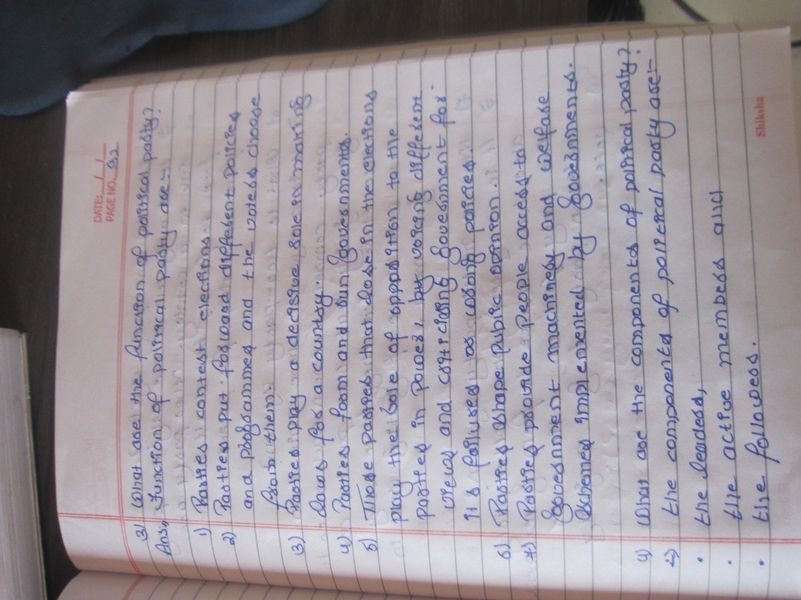 DATE: / /
PAGE NO. 92
3) What are the function of political party?
Ans, Function of political party are:-
1) Parties contest elections.
2) Parties put forward different policies
and programmes and the voters choose
from them.
3) Parties play a decisive role in making
laws for a country.
4) Parties form and run governments.
5) Those parties that lose in the elections
play the role of opposition to the
parties in power, by voicing different
views and criticising government for
its failures or wrong policies.
6) Parties shape public opinion.
7) Parties provide people access to
Government machinery and welfare
schemes implemented by governments.
4) What are the components of political party?
the components of political party are:-
• the leaders,
• the active members and
• the followers.
Shiksha